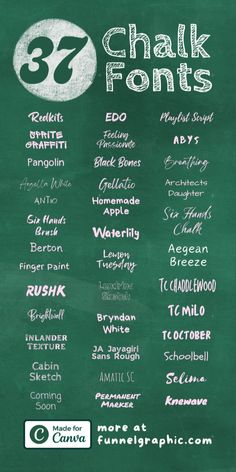 37 Chalk
Fonts
Redkits
EDO
Playlist Script
Sprite
Graffiti
Feeling
Passionate
ABYS
Pangolin
Black Bones
Breathing
Angella White
Gellatio
Architects
Daughter
ANTIO
Homemade
Apple
Six Hands
Brush
Waterlily
Six Hands
Chalk
Berton
Lemon
Tuesday
Aegean
Breeze
Finger Paint
TC CHADDLEWOOD
RUSHK
JA Jayagiri
Sans Rough
TC MILO
Brightwall
Bryndan
White
TC OCTOBER
INLANDER
TEXTURE
Schoolbell
Cabin
Sketch
AMATIC SC
Selima
Coming
Soon
Permanent
Marker
Knewave
C Made for
Canva
more at
funnelgraphic.com